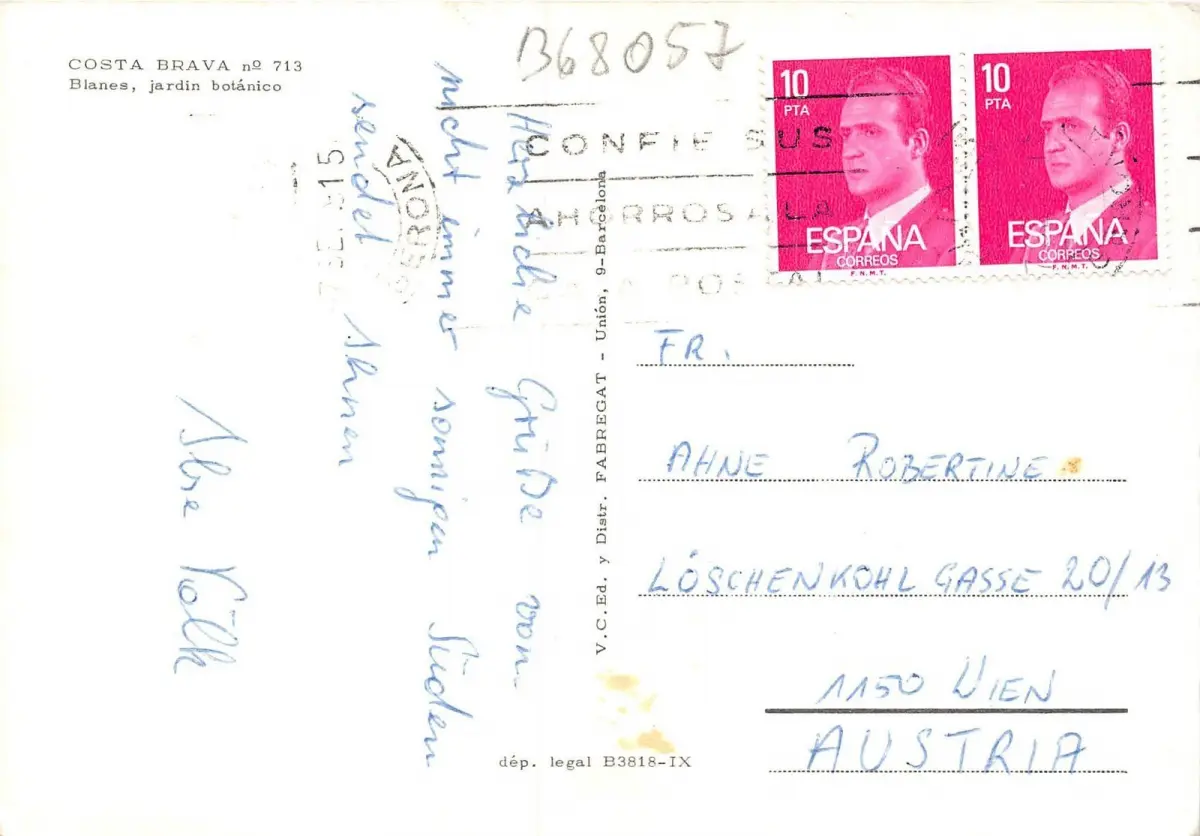 COSTA BRAVA nº 713
Blanes, jardin botánico
B68057
10
PTA
ESPAÑA
CORREOS
F. N. M. T.
10
PTA
ESPAÑA
CORREOS
F. N. M. T.
CONFIE SUS
AHORROS A LA
POSTAL
GERONA
Herzliche Grüße vom
nicht immer sonnigen Süden
sendet Ihnen
Ihre Völk
V. C. Ed. y Distr. FABREGAT - Unión, 9-Barcelona
FR.
AHNE ROBERTINE
LÖSCHENKOHL GASSE 20/13
1150 WIEN
AUSTRIA
dép. legal B3818-IX